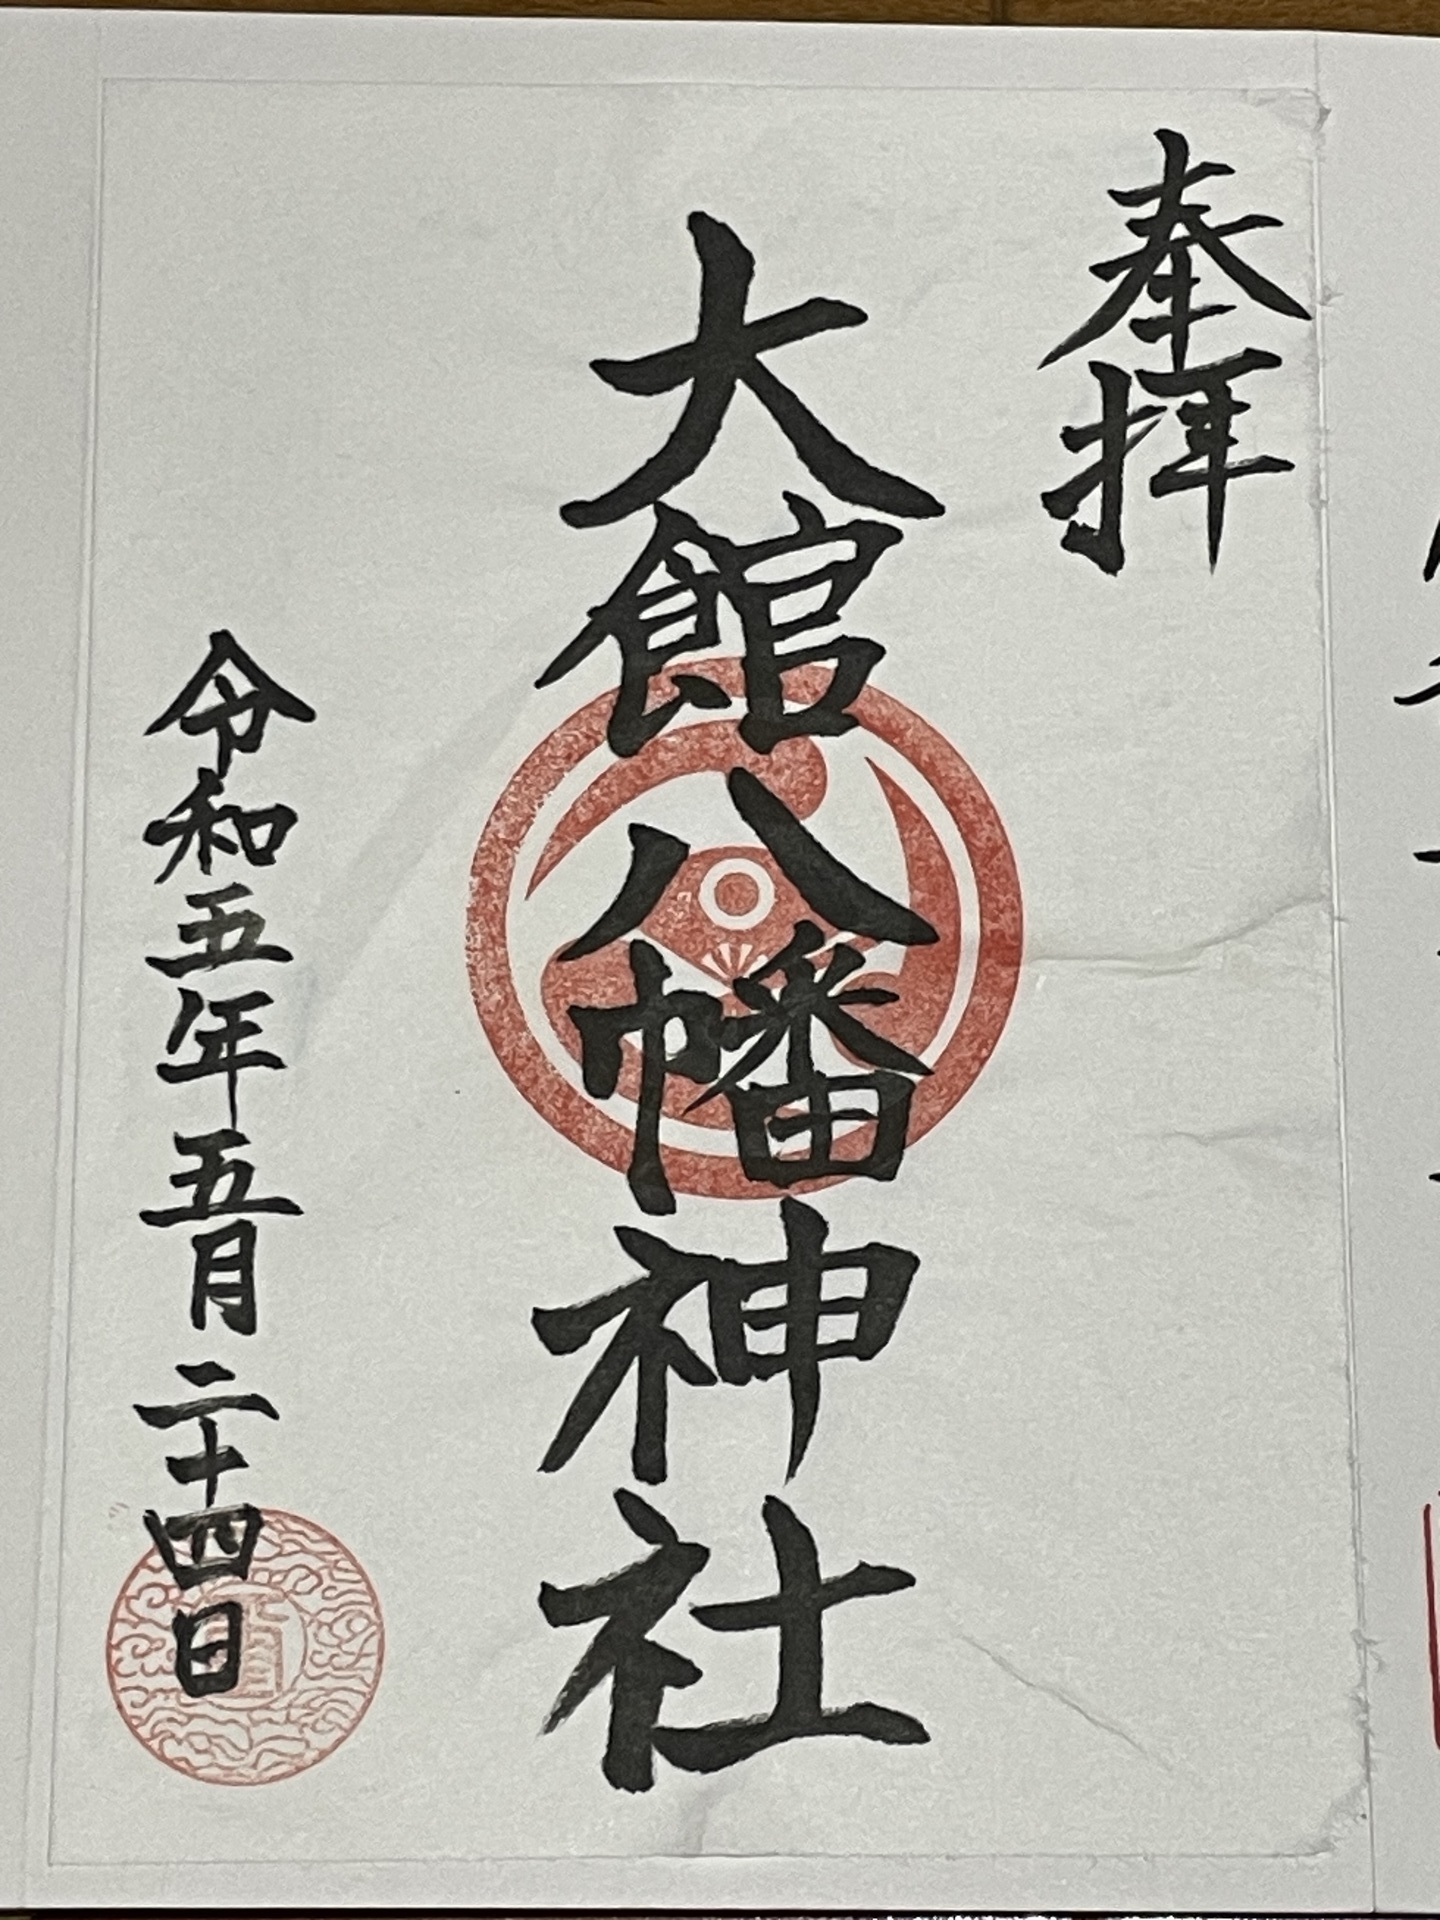 奉拝
大館八幡神社
令和五年五月二十四日